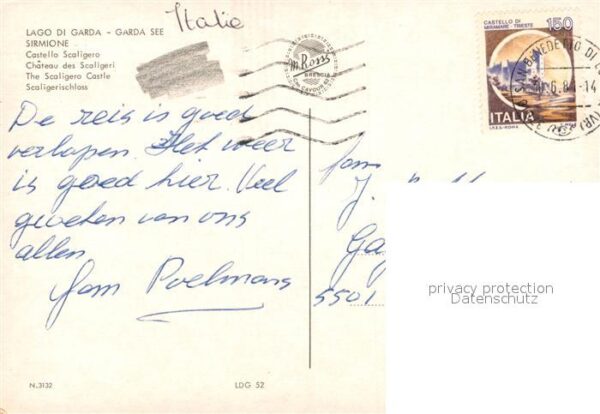 Italie
LAGO DI GARDA - GARDA SEE
SIRMIONE
Castello Scaligero
Château des Scaligeri
The Scaligero Castle
Scaligerischloss
BRESCIA
CASTELLO DI
MIRAMARE - TRIESTE
150
ITALIA
SAN BENEDETTO DI
De reis is goed
verlopen. Het weer
is goed hier. Veel
groeten van ons
allen
Fam Poelmans
Fam
J.
Ga
5501
privacy protection
Datenschutz
N.3132
LDG 52